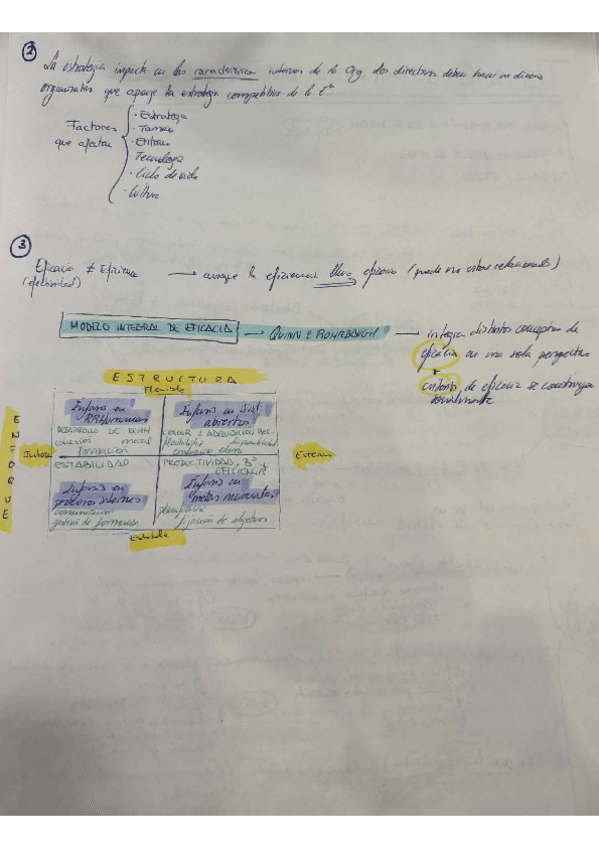 2
La estrategia impacta en las características internas de la Org. Los directivos deben hacer un diseño
organizativo que apoye la estrategia competitiva de la Eª
Factores
que afectan
· Estrategia
· Tamaño
· Entorno
Tecnología
· Ciclo de vida
· Cultura
3
Eficacia ≠ Eficiencia → aunque la eficiencia lleve eficacia (puede no estar relacionada)
(efectividad)
MODELO INTEGRAL DE EFICACIA → QUINN E ROHRBAUGH → integra distintos conceptos de
eficacia en una sola perspectiva
criterios de eficacia se construyen
ESTRUCTURA
Flexible
ENFOQUE
Énfasis en
RRHumanos
DESARROLLO DE RRHH
cohesión moral
formación
Énfasis en Sist.
abiertos
flexibilidad disponibilidad
Interno
Externo
ESTABILIDAD
Énfasis en
procesos internos
comunicación
PRODUCTIVIDAD, Bº y
EFICIENCIA
Énfasis en
planificación
fijación de objetivos
Estable